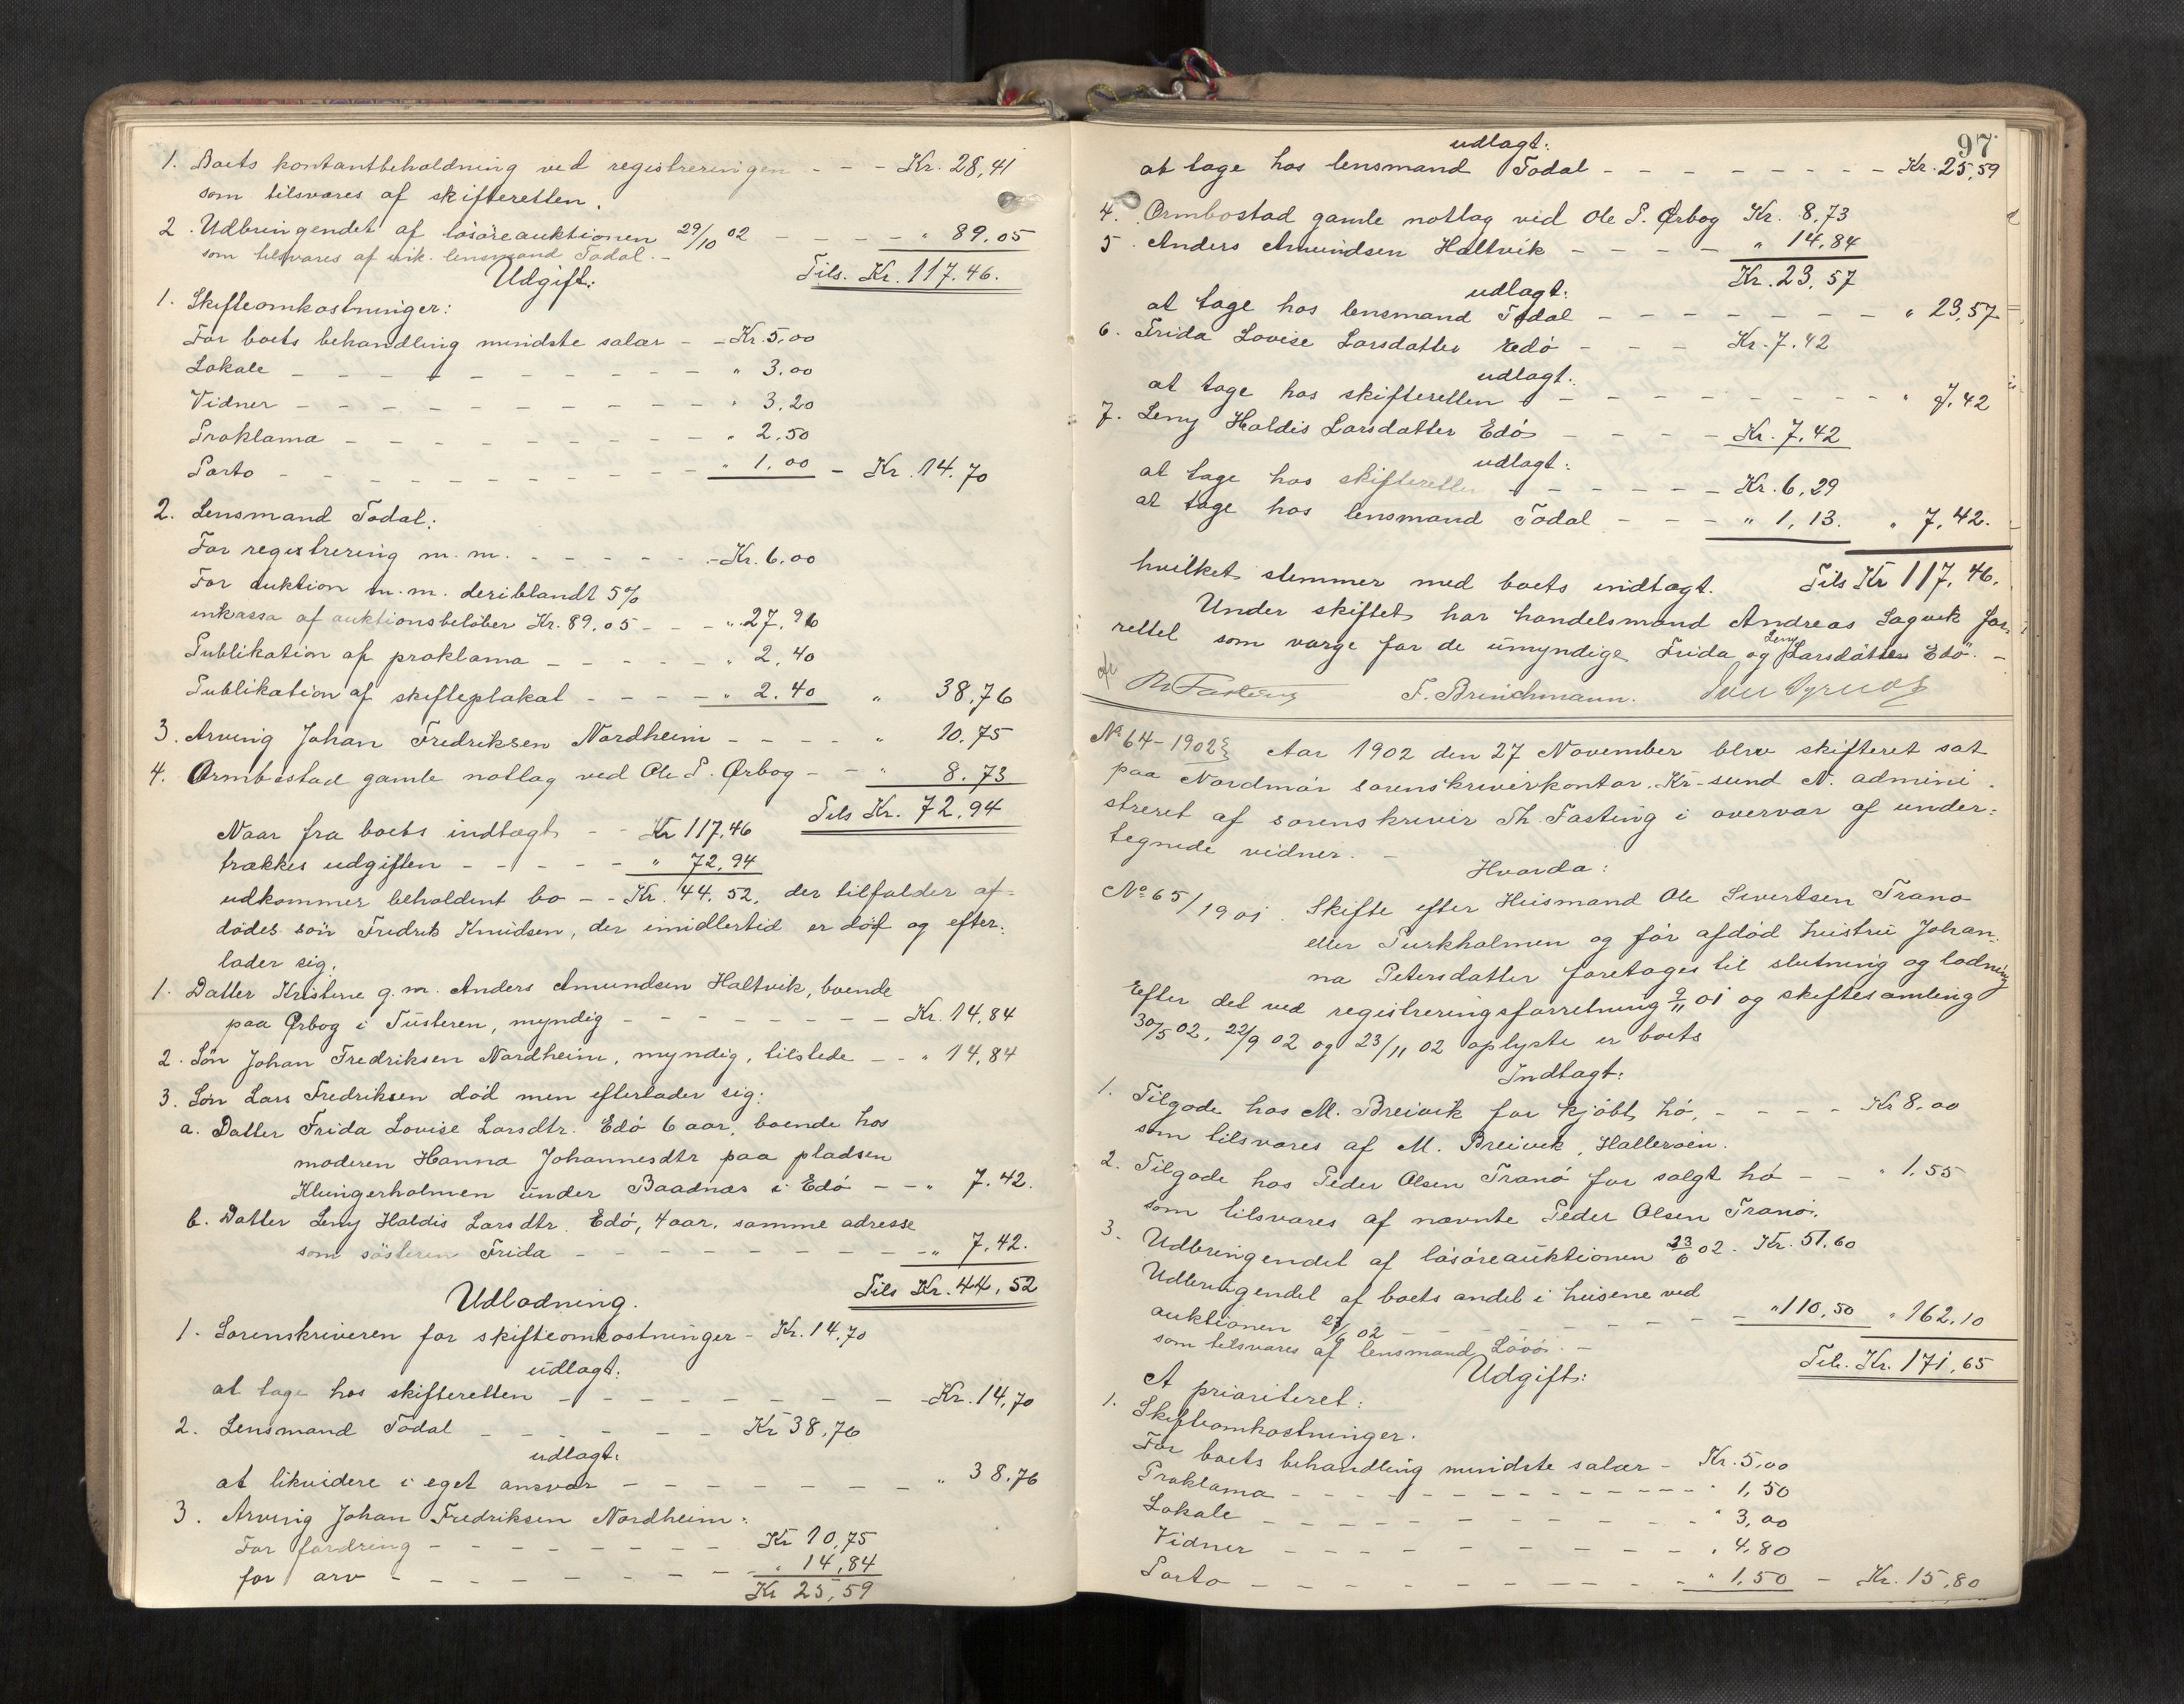 1. Boets kontantbeholdning ved registreringen - - - Kr. 28,41
som tilsvares af skifteretten.
2. Udbringendet af løsøreauktionen 29/10 02 - - - - " 89.05
som tilsvares af lensmand Todal. -
Tils. Kr. 117.46.
Udgift:
1. Skifteomkostninger:
For boets behandling mindste salær - - Kr. 5.00
Lokale - - - - - - - - " 3.00
Vidner - - - - - - - - " 3.20
Proklama - - - - - - - " 2.50
Porto - - - - - - - - " 1.00 - Kr. 14.70
2. Lensmand Todal:
For registrering m.m. - - - - - - Kr. 6.00
For auktion m.m. deriblandt 5%
inkasso af auktionsbeløbet Kr. 89.05 - - - " 27.96
Publikation af proklama - - - - - " 2.40
Publikation af skifteplakat - - - - " 2.40 " 38,76
3. Arving Johan Fredriksen Nordheim - - - - " 10.75
4. Ormbostad gamle notlag ved Ole P. Ørbog - - " 8.73
Tils Kr. 72,94
Naar fra boets indtægt - - Kr 117,46
trækkes udgiften - - - - - " 72,94
udkommer beholdent bo - - Kr. 44.52, der tilfalder af-
dødes søn Fredrik Knudsen, der imidlertid er død og efter-
lader sig.
1. Datter Kristine g.m. Anders Amundsen Haltvik, boende
paa Ørbog i Tusteren, myndig - - - - - - - Kr. 14,84
2. Søn Johan Fredriksen Nordheim, myndig, tilstede - - " 14,84
3. Søn Lars Fredriksen død men efterlader sig:
a. Datter Frida Lovise Larsdtr. Edø 6 aar, boende hos
moderen Hanna Johannesdtr paa pladsen
Klingerholmen under Baadnæs i Edø - - " 7.42.
b. Datter Leny Haldis Larsdtr. Edø, 4 aar, samme adresse
som søsteren Frida - - - - - - - " 7,42.
Tils Kr. 44,52
Udlodning.
1. Sorenskriveren for skifteomkostninger - Kr. 14,70
udlagt:
at tage hos skifteretten - - - - - - - Kr. 14,70
2. Lensmand Todal - - - - - - Kr 38,76
udlagt:
at likvidere i eget ansvar - - - - - - - " 38,76
3. Arving Johan Fredriksen Nordheim:
For fordring - - - - - - - Kr 10,75
for arv - - - - - - - " 14,84
Kr 25,59
97
udlagt:
at tage hos lensmand Todal - - - - - - - - Kr. 25,59
4. Ormbostad gamle notlag ved Ole P. Ørbog Kr. 8,73
5. Anders Amundsen Haltvik - - - - " 14,84
Kr. 23,57
udlagt:
at tage hos lensmand Todal - - - - - - - " 23,57
6. Frida Lovise Larsdatter Edø - - - Kr. 7.42
udlagt:
at tage hos skifteretten - - - - - - - - " 7,42
7. Leny Haldis Larsdatter Edø - - - - Kr. 7,42
udlagt:
at tage hos skifteretten - - - - - Kr. 6,29
at tage hos lensmand Todal - - - " 1,13. " 7,42.
hvilket stemmer med boets indtægt. Tils Kr 117,46.
Under skiftet har handelsmand Andreas Sagvik for-
rettet som værge for de umyndige Frida og Leny Larsdatter Edø. -
Th Fasting F. Brinchmann.
No 64-1902 Aar 1902 den 27 November blev skifteret sat
paa Nordmør sorenskriverkontor, Kr-sund N. admini-
streret af sorenskriver Th. Fasting i overvær af under-
tegnede vidner. -
Hvorda:
No 65/1901. Skifte efter Husmand Ole Sivertsen Tranø
eller Purkholmen og før afdød hustru Johan-
na Petersdatter foretages til slutning og lodning
Efter det ved registreringsforretning 9/11 01 og skiftesamling
30/5 02, 22/9 02 og 23/11 02 oplyste er boets
Indtægt:
1. Tilgode hos M. Breivik for kjøbt hø, - - - - Kr 8.00
som tilsvares af M. Breivik, Hallerøen.
2. Tilgode hos Peder Olsen Tranø for solgt hø - - " 1.55
som tilsvares af nævnte Peder Olsen Tranø.
3. Udbringendet af løsøreauktionen 23/6 02. Kr. 51.60
Udbringendet af boets andel i husene ved
auktionen 23/6 02 - - - - - - - " 110,50 " 162,10
som tilsvares af lensmand Løvø. -
Tils. Kr. 171,65
Udgift:
A prioriteret:
1. Skifteomkostninger.
For boets behandling mindste salær - Kr. 5,00
Proklama - - - - - - - - - " 1,50
Lokale - - - - - - - - " 3,00
Vidner - - - - - - - - " 4,80
Porto - - - - - - - - " 1,50 - Kr. 15,80